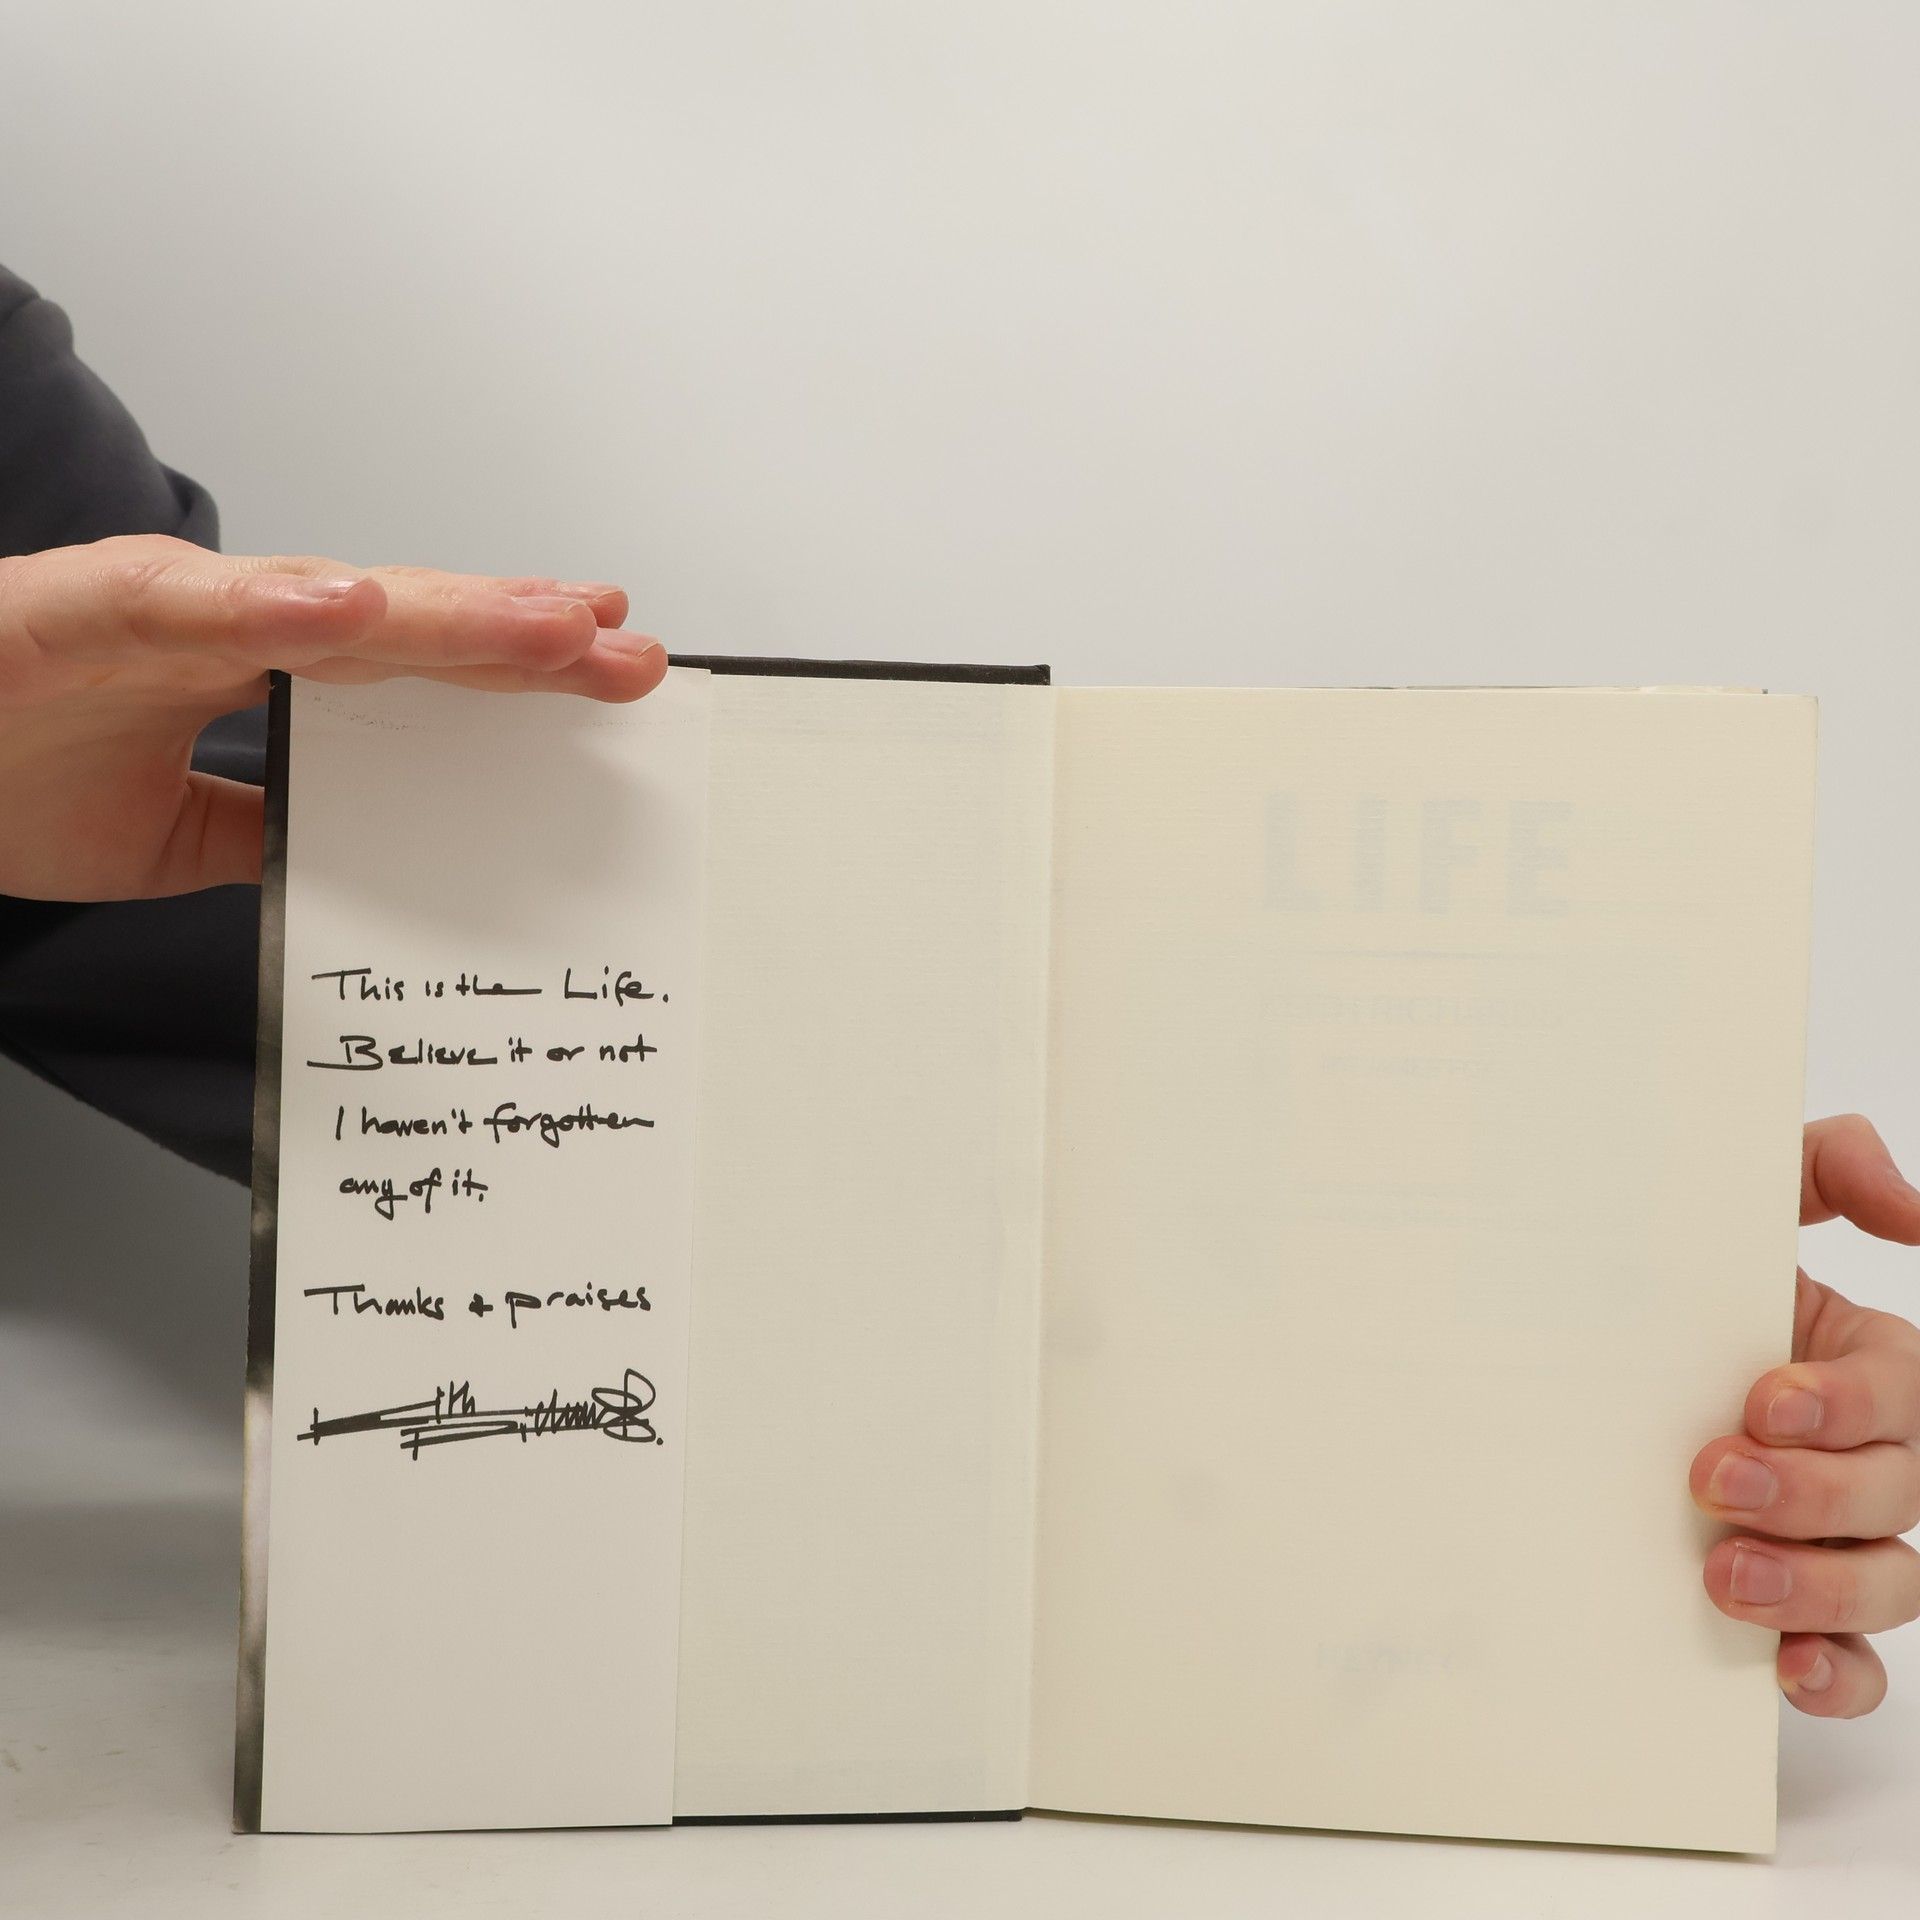 This is the Life.
Believe it or not
I haven't forgotten
any of it.
Thanks + praises
LIFE